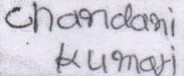 Chandani
Kumari